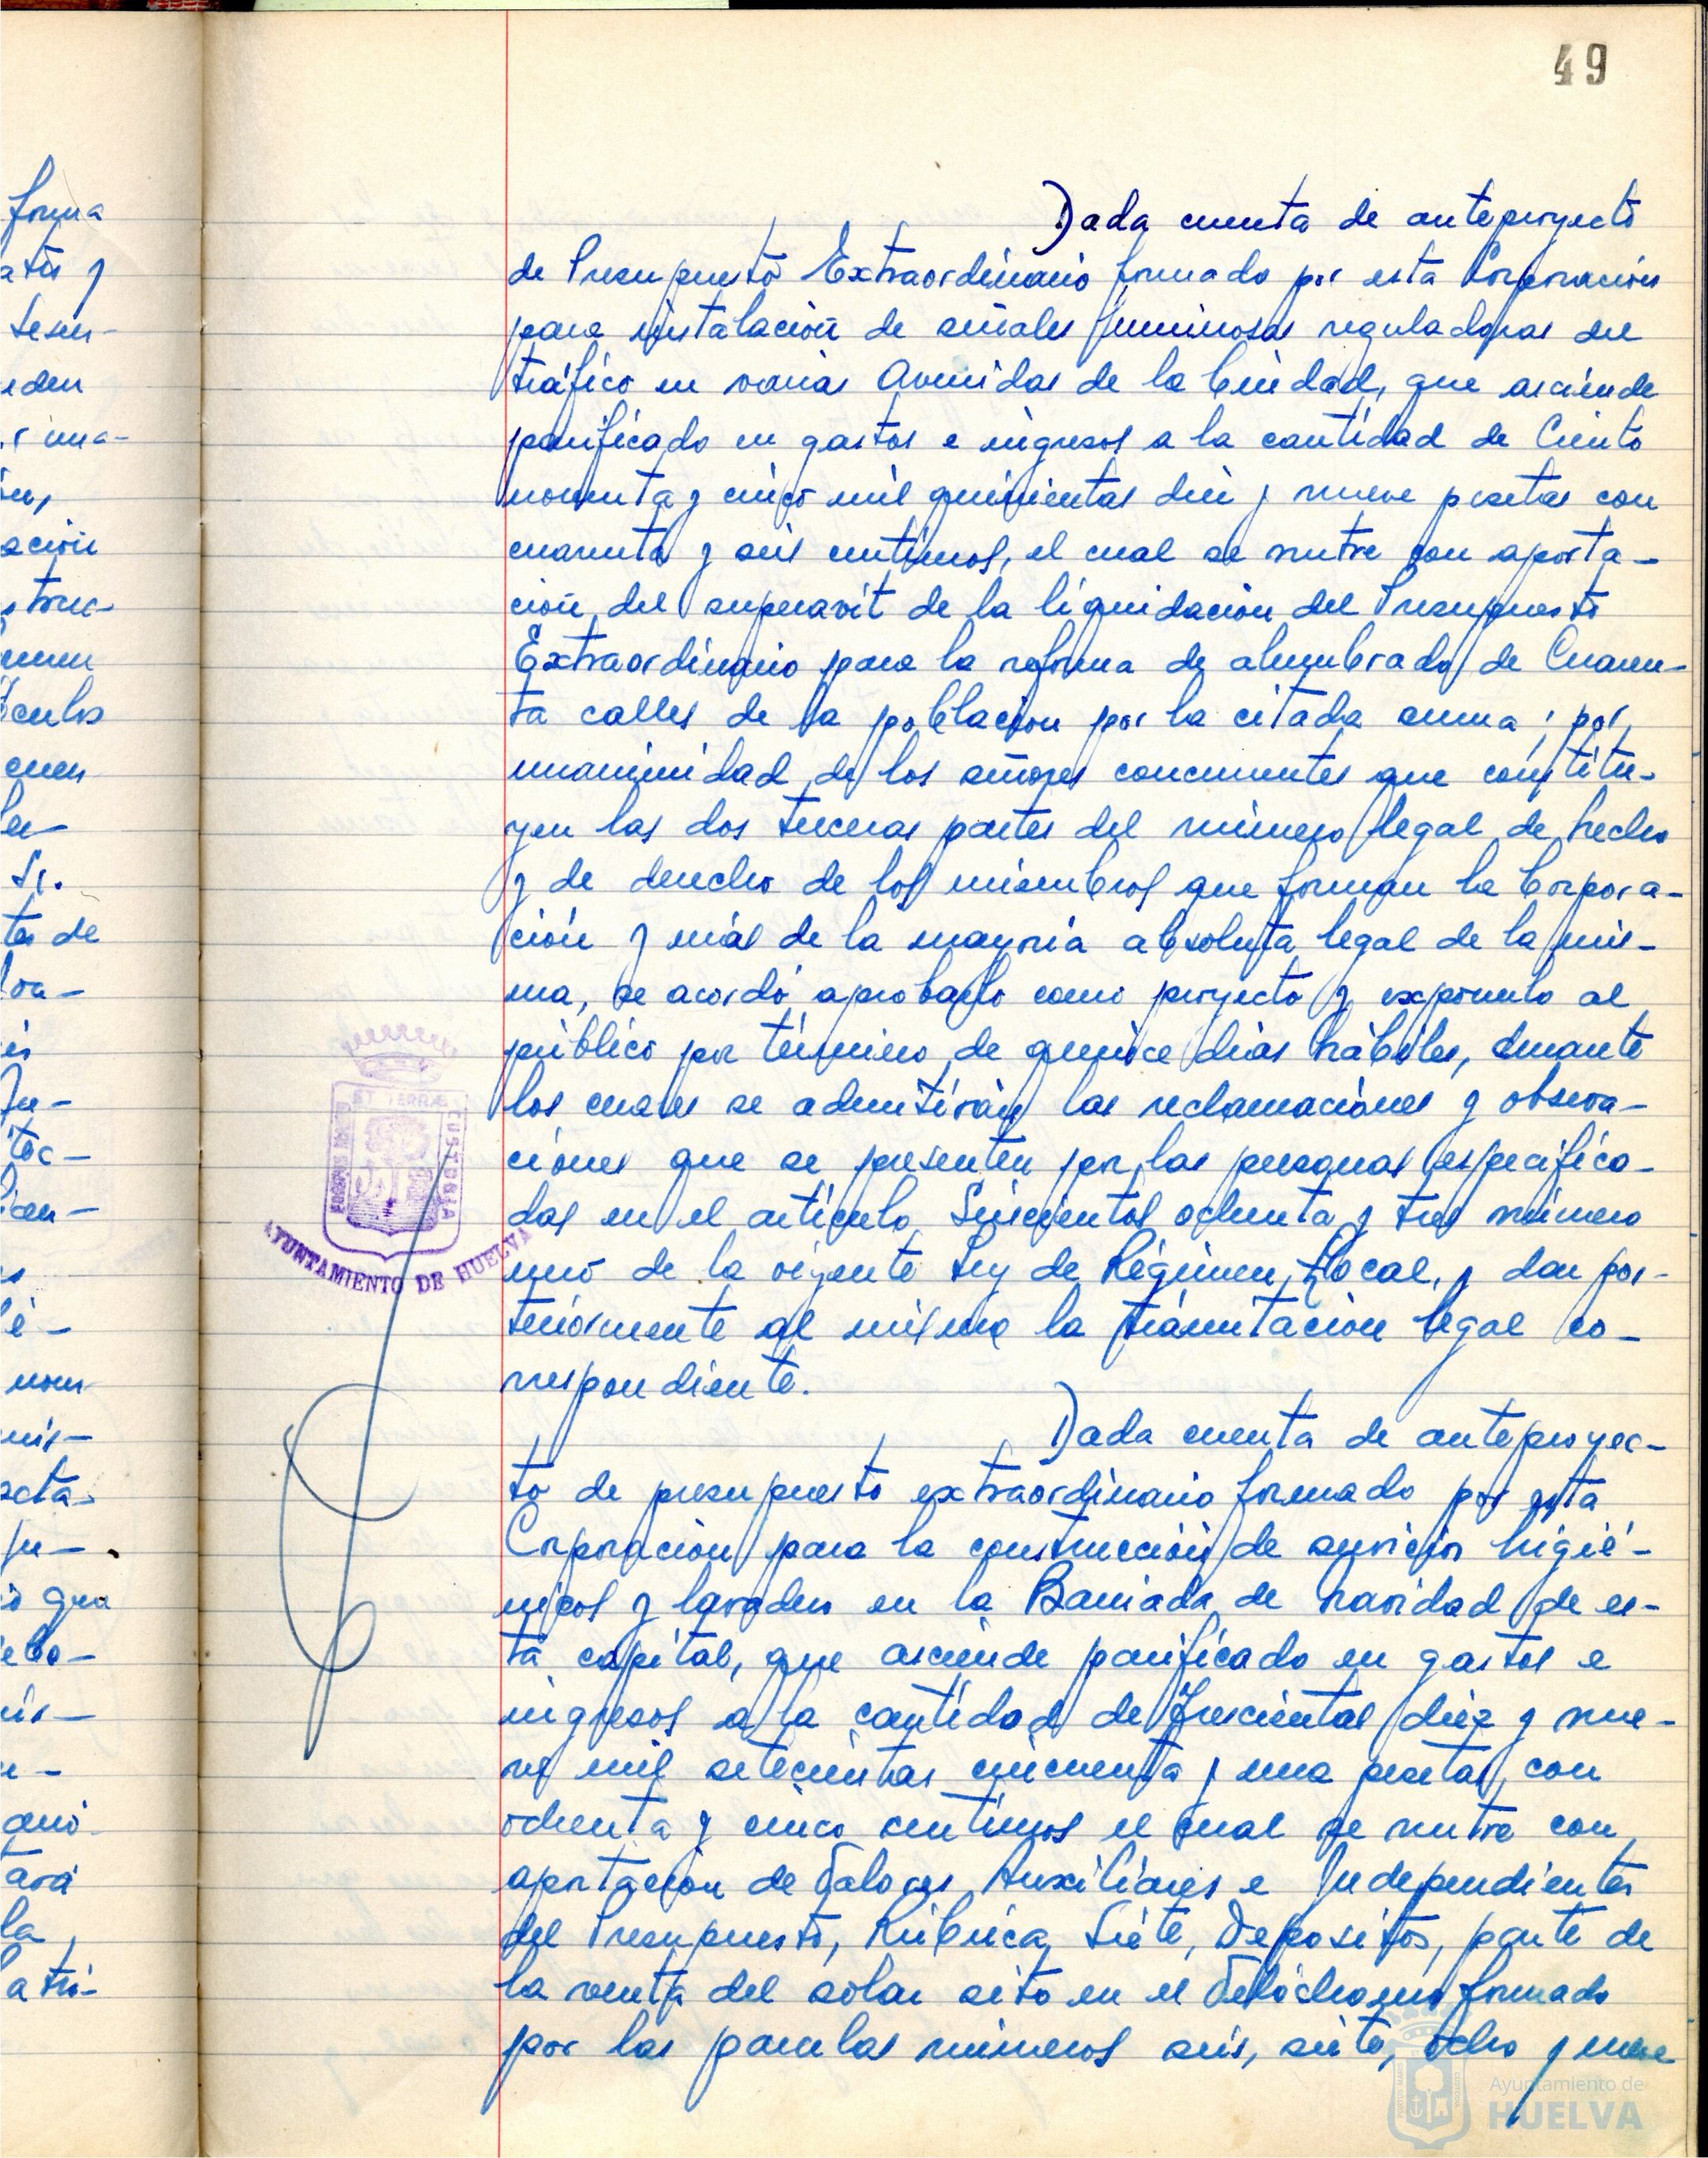 49
Dada cuenta de anteproyecto
de Presupuesto Extraordinario formado por esta Corporación
para instalación de señales luminosas reguladoras del
tráfico en varias Avenidas de la Ciudad, que asciende
panificado en gastos e ingresos a la cantidad de Ciento
noventa y cinco mil quinientas diez y nueve pesetas con
cuarenta y seis centimos, el cual se nutre con aporta-
ción del superavit de la liquidación del Presupuesto
Extraordinario para la reforma de alumbrado de Cuaren-
ta calles de la población por la citada suma; por
unanimidad de los señores concurrentes que constitu-
yen las dos terceras partes del número legal de hecho
y de derecho de los miembros que forman la Corpora-
ción y más de la mayoría absoluta legal de la mis-
ma, se acordó aprobarlo como proyecto y exponerlo al
público por término de quince dias hábiles, durante
los cuales se admitirán las reclamaciones y observa-
ciones que se presenten por las personas especifica-
das en el artículo Seiscientos ochenta y tres número
uno de la vigente Ley de Régimen Local, y dar pos-
teriormente al mismo la tramitación legal co-
rrespondiente.
Dada cuenta de anteproyec-
to de presupuesto extraordinario formado por esta
Corporación para la construcción de servicios higié-
nicos y lavaderos en la Barriada de navidad de es-
ta capital, que asciende panificado en gastos e
ingresos a la cantidad de trescientas diez y nue-
ve mil setecientas cincuenta y una pesetas con
ochenta y cinco centimos el cual se nutre con
aportación de Valores Auxiliares e Independientes
del Presupuesto, Rúbrica Siete, Depositos, parte de
la venta del solar sito en el Velódromo formado
por las parcelas números seis, siete, ocho y nueve
AYUNTAMIENTO DE HUELVA
ET TERRÆ CUSTODIA
forma
eden
ación
tes de
la
Ayuntamiento de
HUELVA